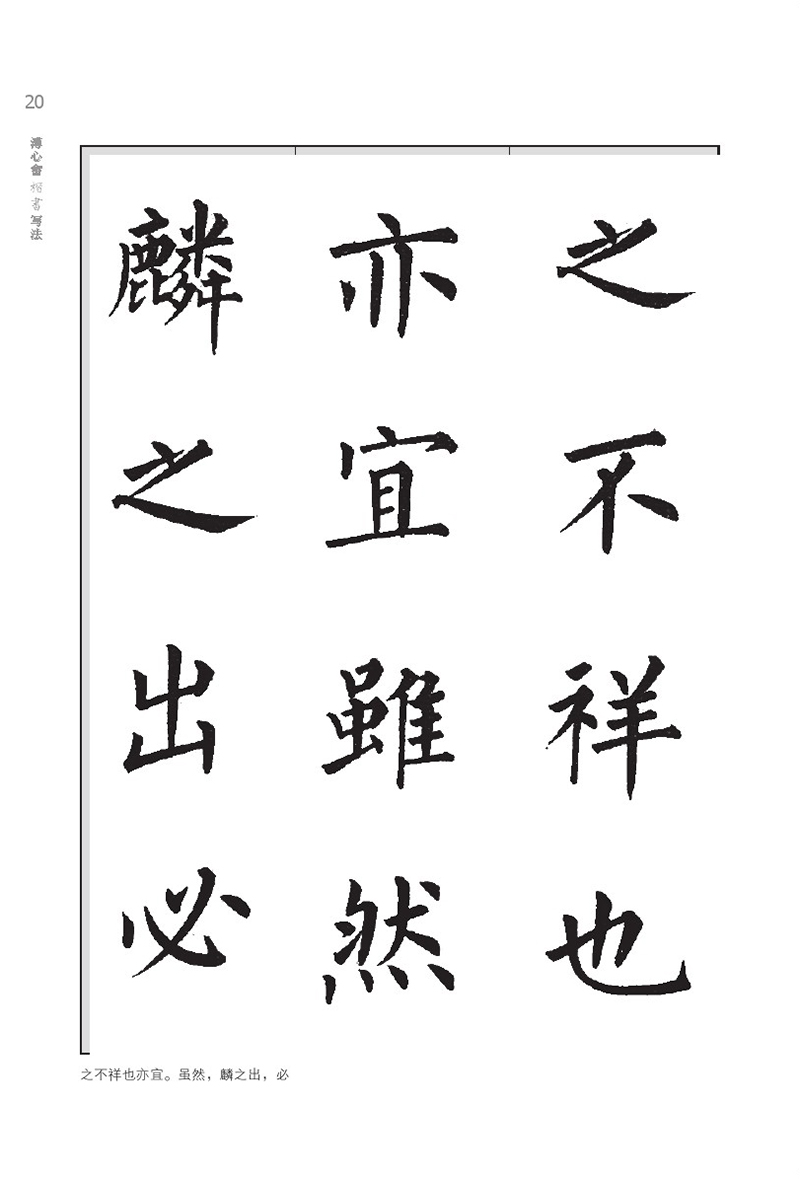 20
溥心畬楷书写法
之不祥也
亦宜雖然
麟之出必
之不祥也亦宜。虽然，麟之出，必